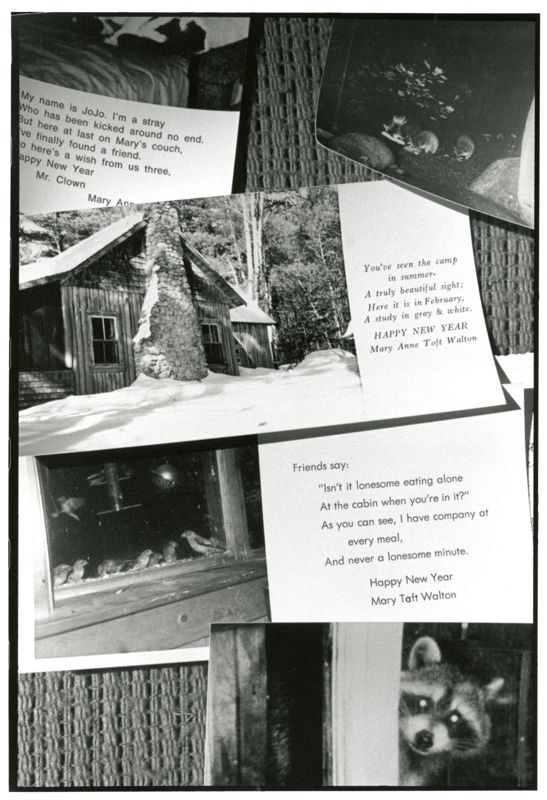 My name is JoJo. I'm a stray
Who has been kicked around no end.
But here at last on Mary's couch,
I've finally found a friend.
So here's a wish from us three,
Happy New Year
Mr. Clown
Mary Ann
You've seen the camp
in summer-
A truly beautiful sight;
Here it is in February,
A study in gray & white.
HAPPY NEW YEAR
Mary Anne Toft Walton
Friends say:
"Isn't it lonesome eating alone
At the cabin when you're in it?"
As you can see, I have company at
every meal,
And never a lonesome minute.
Happy New Year
Mary Taft Walton